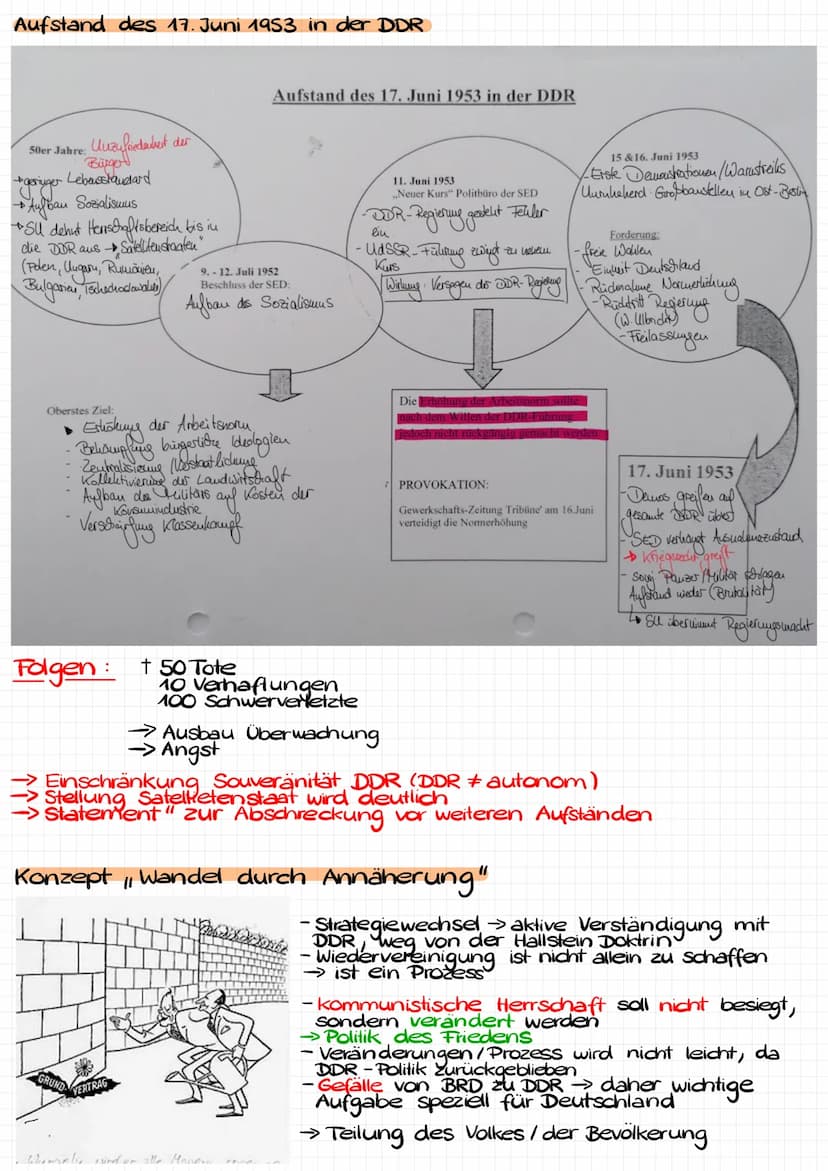 Aufstand des 17. Juni 1953 in der DDR
Aufstand des 17. Juni 1953 in der DDR
50er Jahre: Unzufriedenheit der
Bürger
→ geringer Lebensstandard
→ Aufbau Sozialismus
→ SU dehnt Herrschaftsbereich bis in
die DDR aus → „Satellitenstaaten"
(Polen, Ungarn, Rumänien,
Bulgarien, Tschechoslowakei)
9. - 12. Juli 1952
Beschluss der SED:
Aufbau des Sozialismus
11. Juni 1953
„Neuer Kurs" Politbüro der SED
- DDR-Regierung gesteht Fehler
ein
- UdSSR-Führung zwingt zu neuem
Kurs
Wirkung: Versagen der DDR-Regierung
15 &16. Juni 1953
- Erste Demonstrationen/Warnstreiks
Großbaustellen in Ost-Berlin
Forderung:
- freie Wahlen
- Einheit Deutschland
- Rücknahme Normerhöhung
- Rücktritt Regierung
(W. Ulbricht)
- Freilassungen
Oberstes Ziel:
Erhöhung der Arbeitsnorm
- Bekämpfung bürgerliche Ideologien
- Zentralisierung / Verstaatlichung
- Kollektivierung der Landwirtschaft
- Aufbau des Militärs auf Kosten der
Konsumindustrie
- Verschärfung Klassenkampf
Die Erhöhung der Arbeitsnorm sollte
nach dem Willen der DDR-Führung
jedoch nicht rückgängig gemacht werden
PROVOKATION:
Gewerkschafts-Zeitung Tribüne' am 16.Juni
verteidigt die Normerhöhung
17. Juni 1953
- Demos greifen auf
gesamte DDR über
- SED verhängt Ausnahmezustand
→ Kriegsrecht greift
- sowj. Panzer/Militär schlagen
Aufstand nieder (Brutalität)
↳ SU übernimmt Regierungsmacht
Folgen: † 50 Tote
10 Verhaftungen
100 Schwerverletzte
→ Ausbau Überwachung
→ Angst
→ Einschränkung Souveränität DDR (DDR ≠ autonom)
→ Stellung Satelketenstaat wird deutlich
→ Statement" zur Abschreckung vor weiteren Aufständen
Konzept „Wandel durch Annäherung"
- Strategiewechsel → aktive Verständigung mit
DDR, weg von der Hallstein Doktrin
- Wiedervereinigung ist nicht allein zu schaffen
→ ist ein Prozess
- kommunistische Herrschaft soll nicht besiegt,
sondern verändert werden
→ Politik des Friedens
- Veränderungen / Prozess wird nicht leicht, da
DDR - Politik zurückgeblieben
- Gefälle von BRD zu DDR → daher wichtige
Aufgabe speziell für Deutschland
→ Teilung des Volkes / der Bevölkerung
GRUND VERTRAG